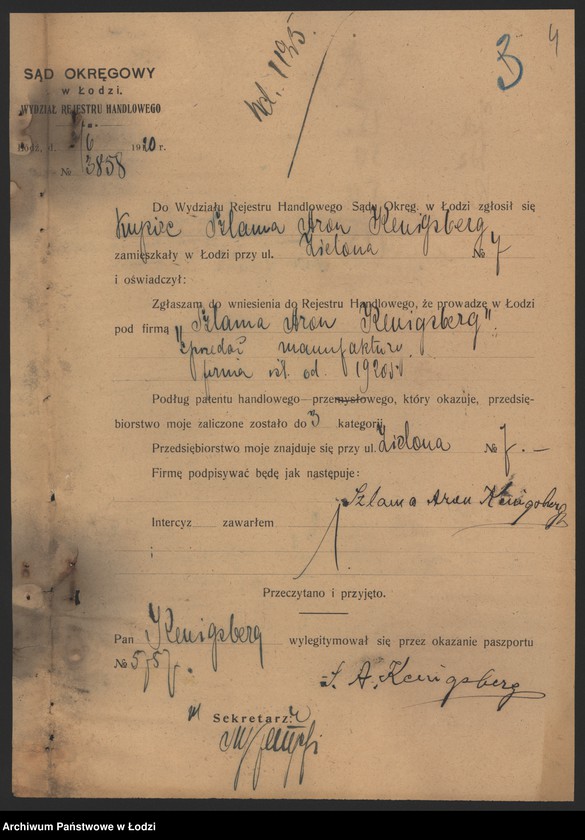 4
3
SĄD OKRĘGOWY
w Łodzi.
WYDZIAŁ REJESTRU HANDLOWEGO
Łódź, d. 1920 r.
№ 3858
Do Wydziału Rejestru Handlowego Sądu Okręg. w Łodzi zgłosił się
Kupiec Szlama Aron Kenigsberg
zamieszkały w Łodzi przy ul. Zielona № 7
i oświadczył:
Zgłaszam do wniesienia do Rejestru Handlowego, że prowadzę w Łodzi
pod firmą "Szlama Aron Kenigsberg".
sprzedaż manufaktury.
firma od 1920 r.
Podług patentu handlowego przemysłowego, który okazuje, przedsię-
biorstwo moje zaliczone zostało do 3 kategorji
Przedsiębiorstwo moje znajduje się przy ul. Zielona № 7. —
Firmę podpisywać będę jak następuje:
Szlama Aron Kenigsberg
Intercyz zawarłem
Przeczytano i przyjęto.
Pan Kenigsberg wylegitymował się przez okazanie paszportu
№ 5757.
S. A. Kenigsberg
Sekretarz:
Archiwum Państwowe w Łodzi